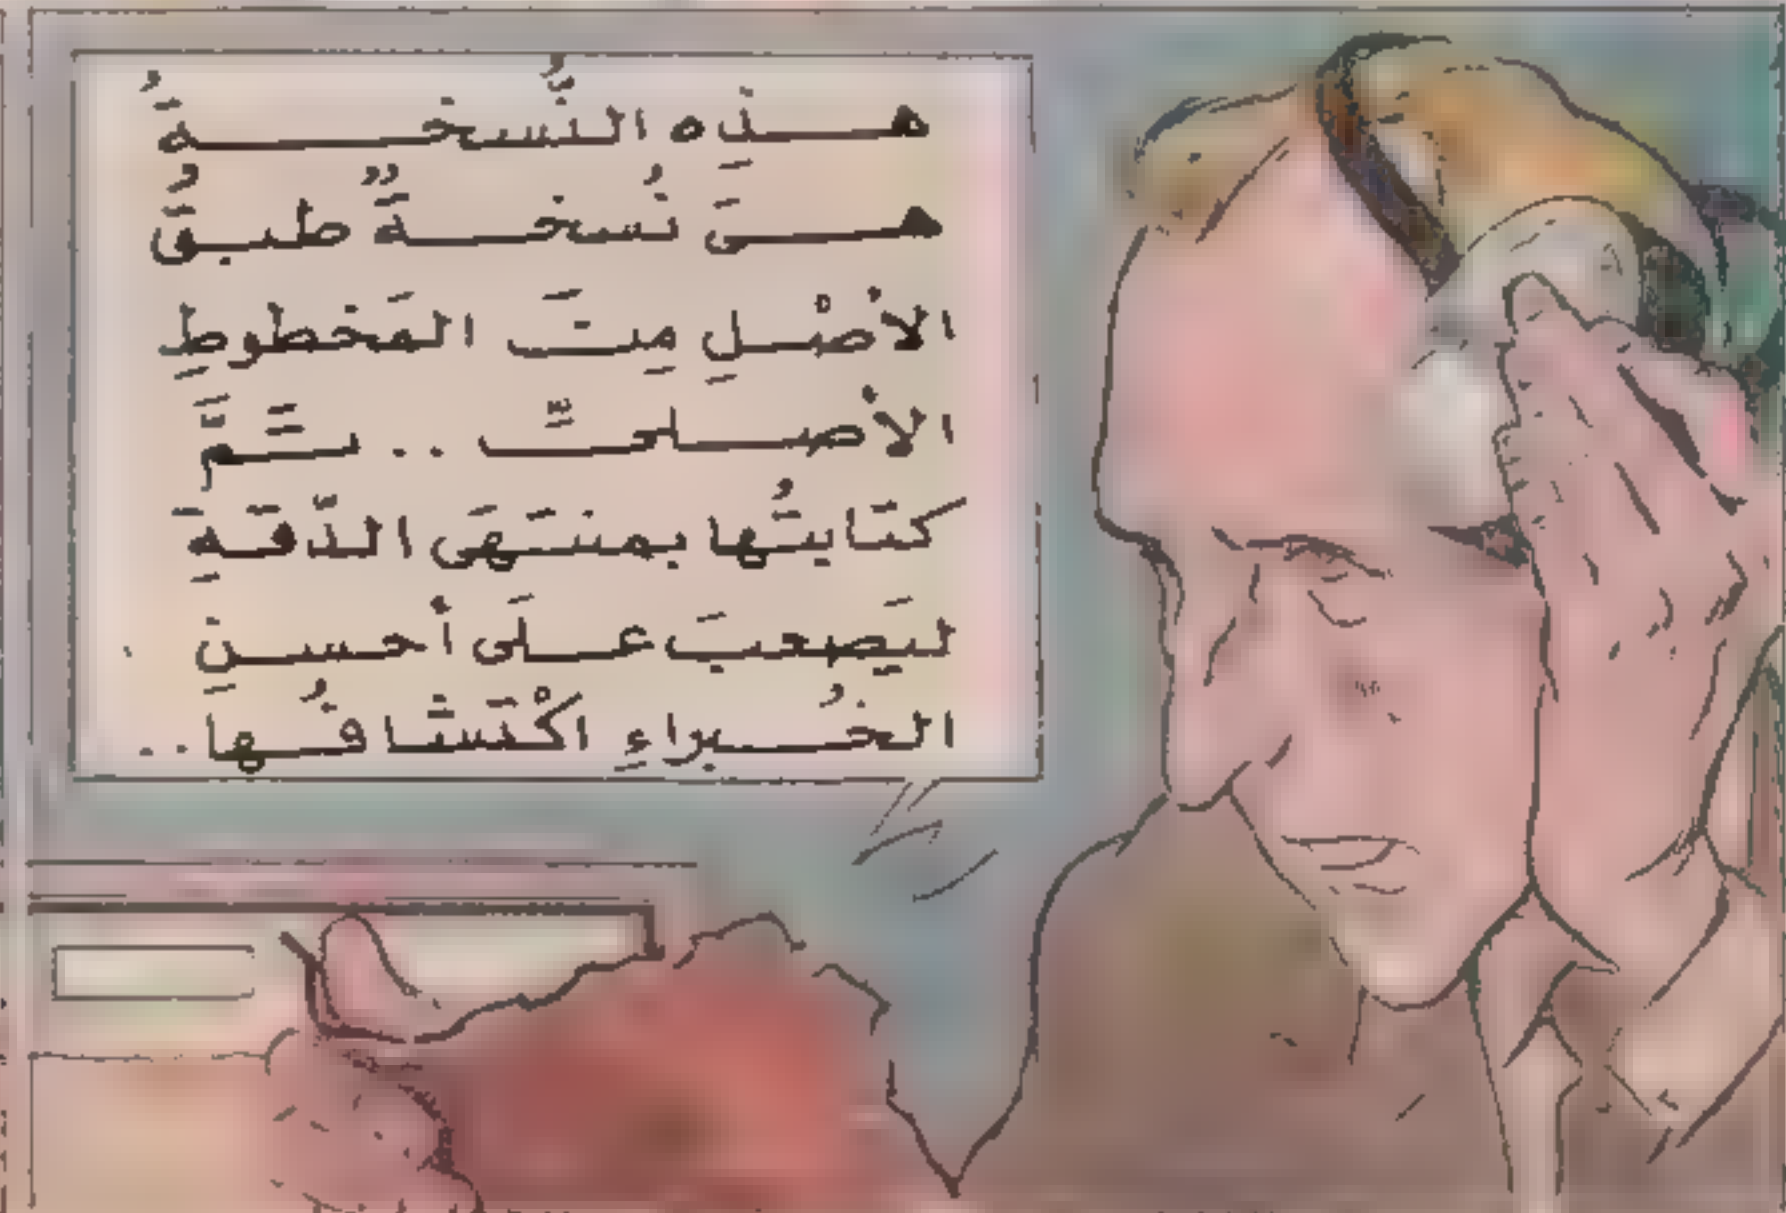 هَذِهِ النُّسخَةُ
هىَ نُسخَةٌ طبقُ
الأصْلِ مِنَ المَخطوطِ
الأصلىِّ .. تَمَّ
كتَابتُها بمنتَهَى الدّقَةِ
ليَصعبَ علَى أحسنِ
الخُبراءِ اكْتشَافُها ..